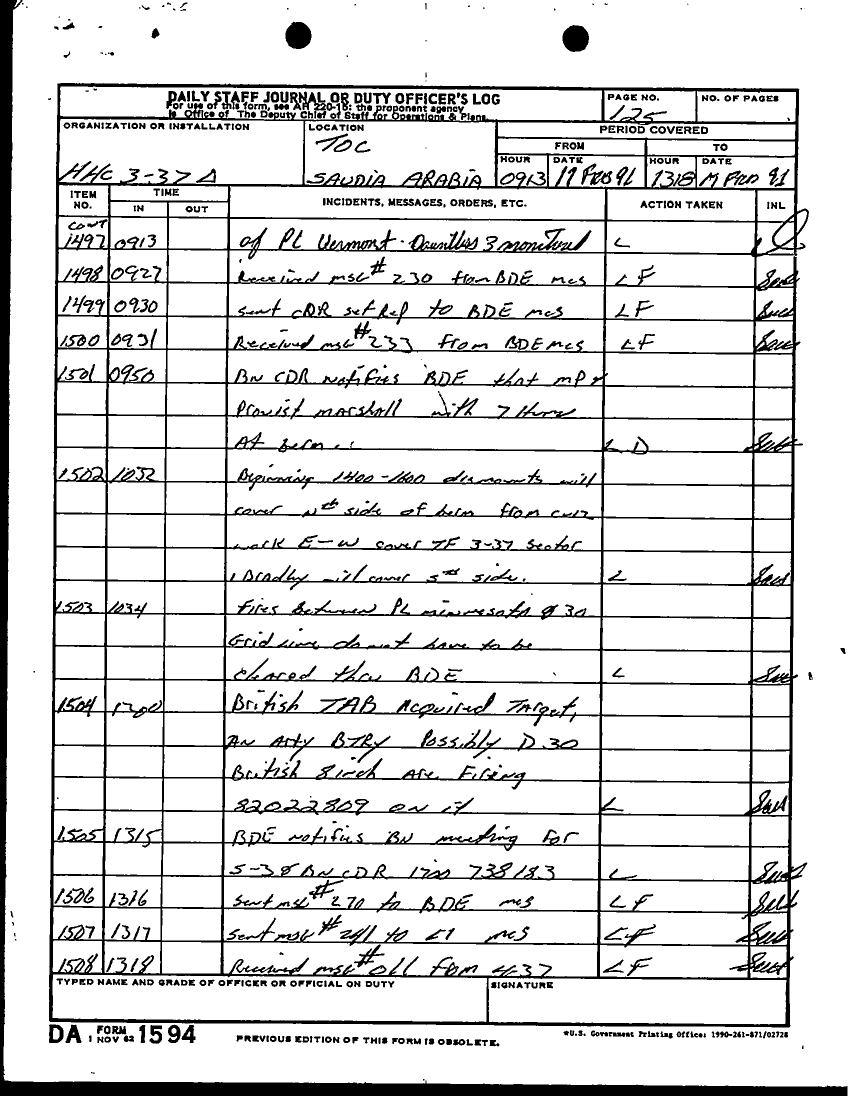 DAILY STAFF JOURNAL OR DUTY OFFICER'S LOG
For use of this form, see AR 220-15; the proponent agency
is Office of The Deputy Chief of Staff for Operations & Plans.
PAGE NO.
125
NO. OF PAGES
ORGANIZATION OR INSTALLATION
HHC 3-37 A
LOCATION
TOC
SAUDIA ARABIA
PERIOD COVERED
FROM
TO
HOUR
DATE
HOUR
DATE
0913 17 Feb 91 1318 Feb 91
ITEM NO.
TIME
IN
OUT
INCIDENTS, MESSAGES, ORDERS, ETC.
ACTION TAKEN
INL
cont
1497 0913 of PL Vermont. Dauntless 3 monitored L
1498 0927 Received msg # 230 from BDE mcs LF
1499 0930 sent CDR set Rep to BDE mcs LF
1500 0931 Received msg # 233 from BDE mcs LF
1501 0950 BN CDR notifies BDE that MP
Provist marshall with 7
At berm L D
1502 1032 Beginning 1400-1600 dismounts will
cover Nth side of berm from
work E-W cover TF 3-37 Sector
1 Bradley will cover Sth side. L
1503 1034 Fires between PL minnesota 30
Grid line do not have to be
cleared thru BDE L
1504 1200 British TAB Acquired Target,
AN Arty BTRY Possibly D 30
British 8 inch are Firing
82022809 on it L
1505 1315 BDE notifies BN meeting for
5-38 BN CDR 1700 738183 L
1506 1316 sent msg # 270 to BDE mcs LF
1507 1317 sent msg # 241 to mcs LF
1508 1318 Received msg # 011 from 4-37 LF
TYPED NAME AND GRADE OF OFFICER OR OFFICIAL ON DUTY
SIGNATURE
DA FORM 1 NOV 62 1594
PREVIOUS EDITION OF THIS FORM IS OBSOLETE.
*U.S. Government Printing Office: 1990-261-871/02728